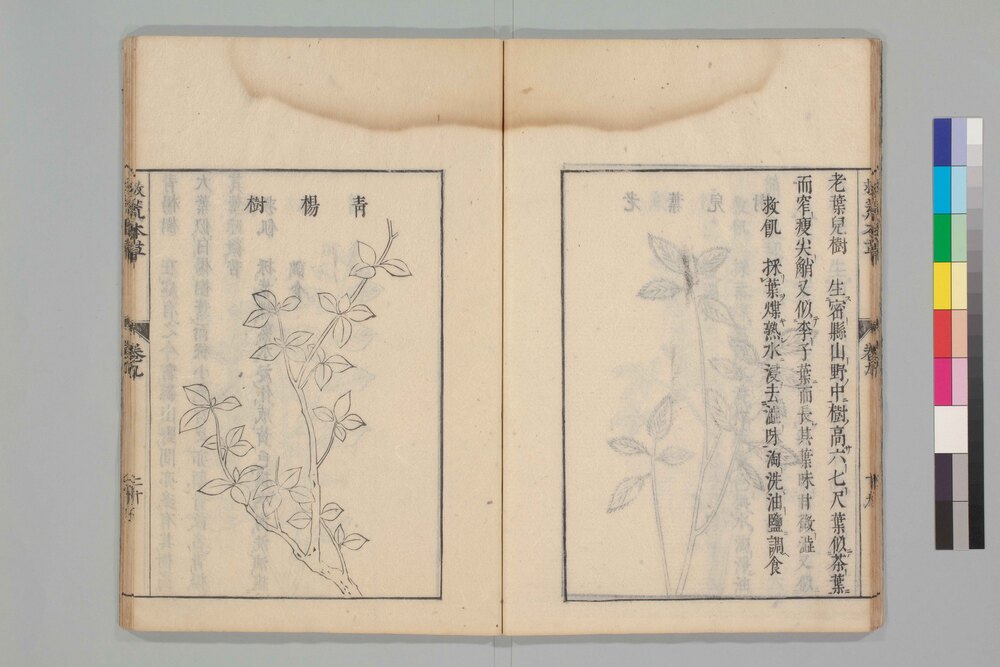 救荒本草
卷九
老葉兒樹 生密縣山野中樹高六七尺葉似茶葉
而窄瘦尖艄又似李子葉而長其葉味甘微澁
救飢 採葉煠熟水浸去澁味淘洗油鹽調食
青楊樹
救荒本草
卷九